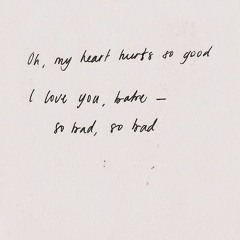 Oh, my heart hurts so good
I love you, babe —
so bad, so bad